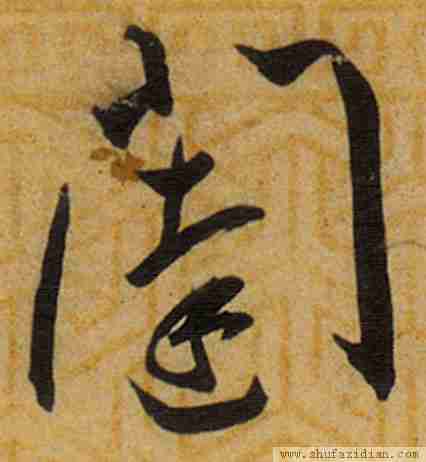 闥
www.shufazidian.com